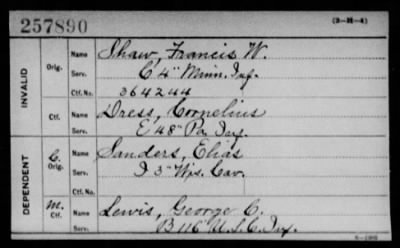 257890 (3-21-4)
INVALID
Orig. Name Shaw, Francis W.
Serv. C 4" Minn. Inf.
Ctf. No. 364244
Ctf. Name Dress, Cornelius
Serv. E 48" Pa. Inf.
DEPENDENT
C. Orig. Name Sanders, Elias
Serv. I 3" Wis. Cav.
Ctf. No.
M. Ctf. Name Lewis, George C.
Serv. B 116 U.S.C. Inf.